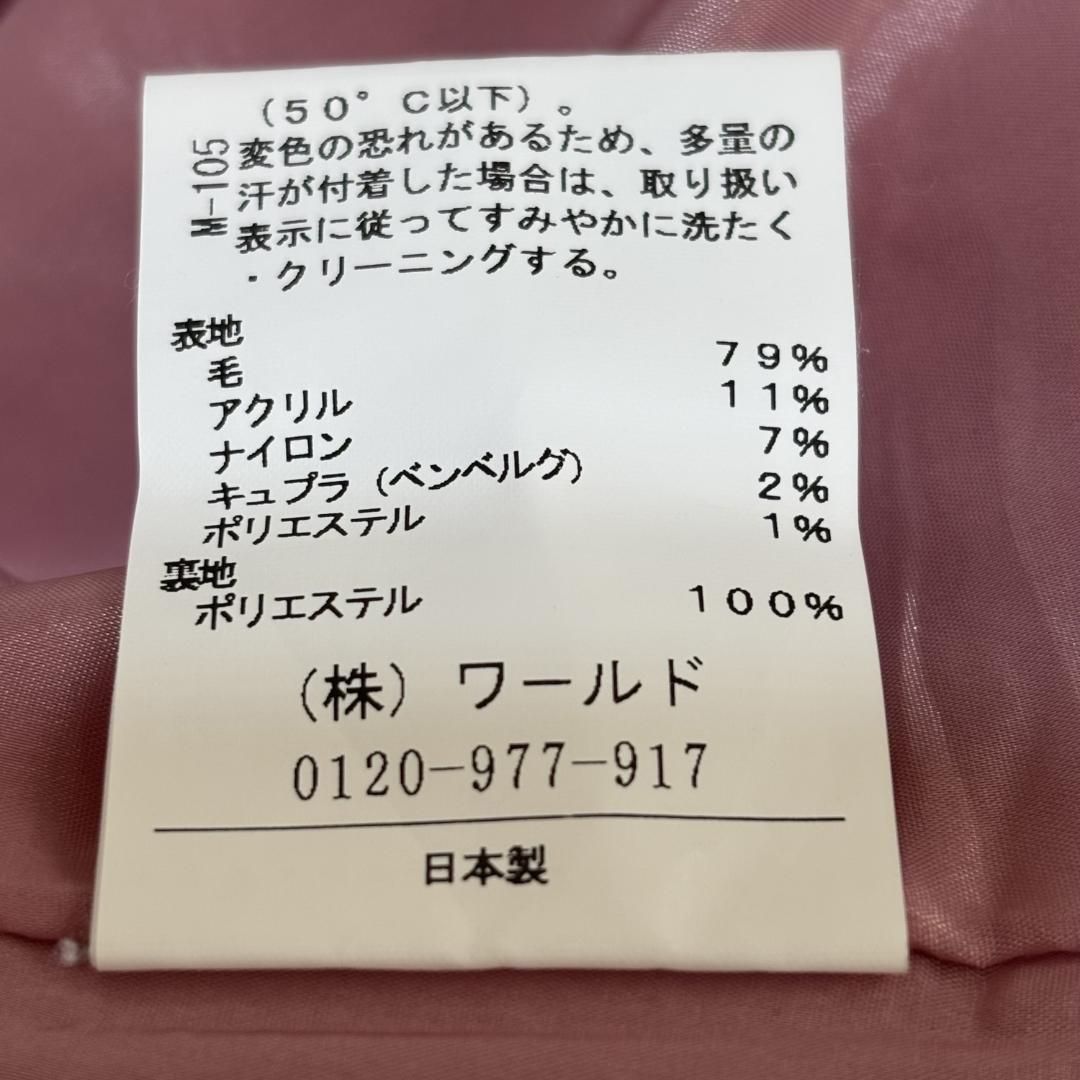 （５０°Ｃ以下）。
M-105
変色の恐れがあるため、多量の
汗が付着した場合は、取り扱い
表示に従ってすみやかに洗たく
・クリーニングする。
表地
毛 ７９％
アクリル １１％
ナイロン ７％
キュプラ（ベンベルグ） ２％
ポリエステル １％
裏地
ポリエステル １００％
（株）ワールド
0120-977-917
日本製